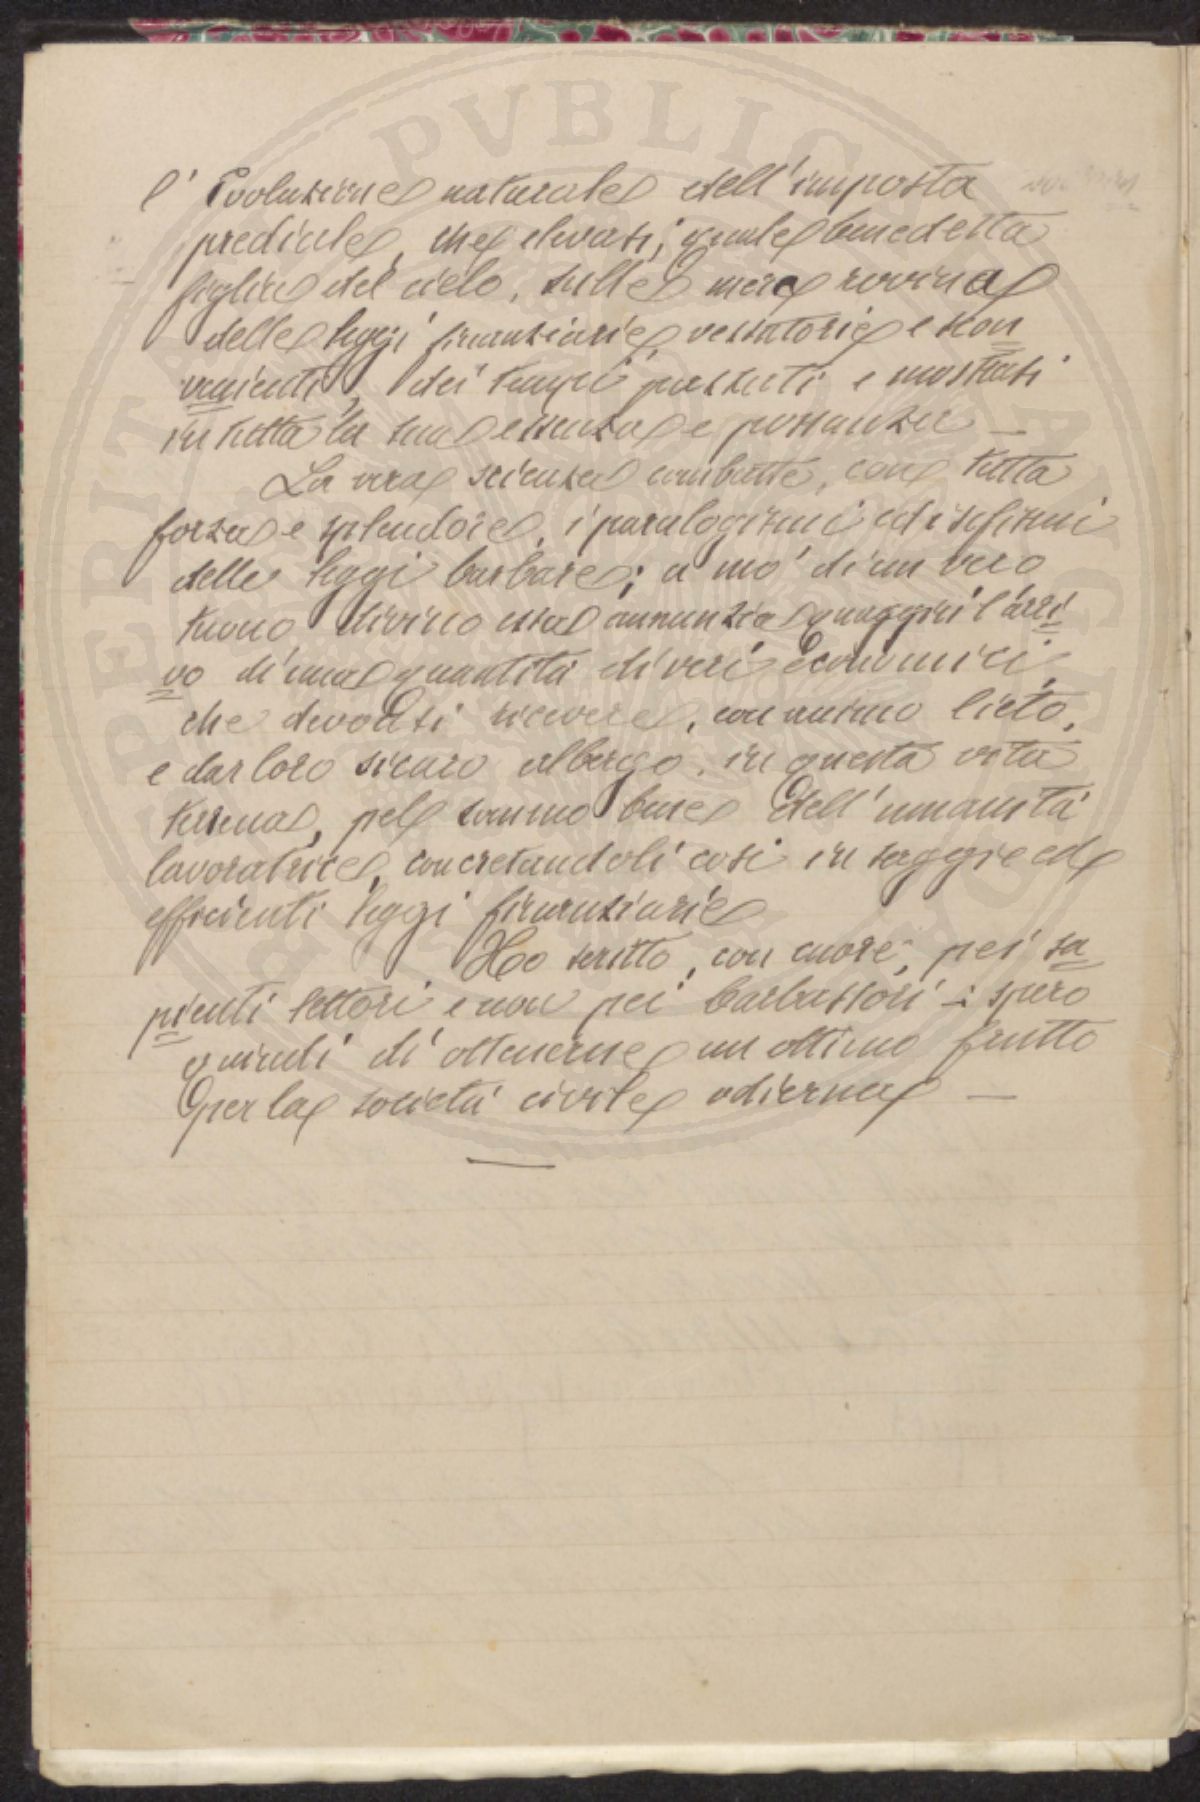 l'Evoluzione naturale dell'imposta
prediale, che elevasi, quale benedetta
figlia del cielo, sulle rovina
delle leggi finanziarie vessatorie e scon
venienti, dei tempi passati e mostrasi
in tutta la sua essenza e possanza —
La vera scienza combatte, con tutta
forza e splendore, i paralogismi ed i sofismi
delle leggi barbare; a mo' di un vero
tuono divino essa annunzia quaggiù l'arri
vo di una quantità di veri economici,
che devonsi ricevere, con animo lieto,
e dar loro sicuro albergo, in questa vita
terrena, pel sommo bene dell'umanità
lavoratrice, concretandoli così in saggie ed
efficienti leggi finanziarie
Ho scritto, con cuore, pei sa
pienti lettori e non pei barbassori — spero
quindi di ottenerne un ottimo frutto
per la società civile odierna —
PVBLICA